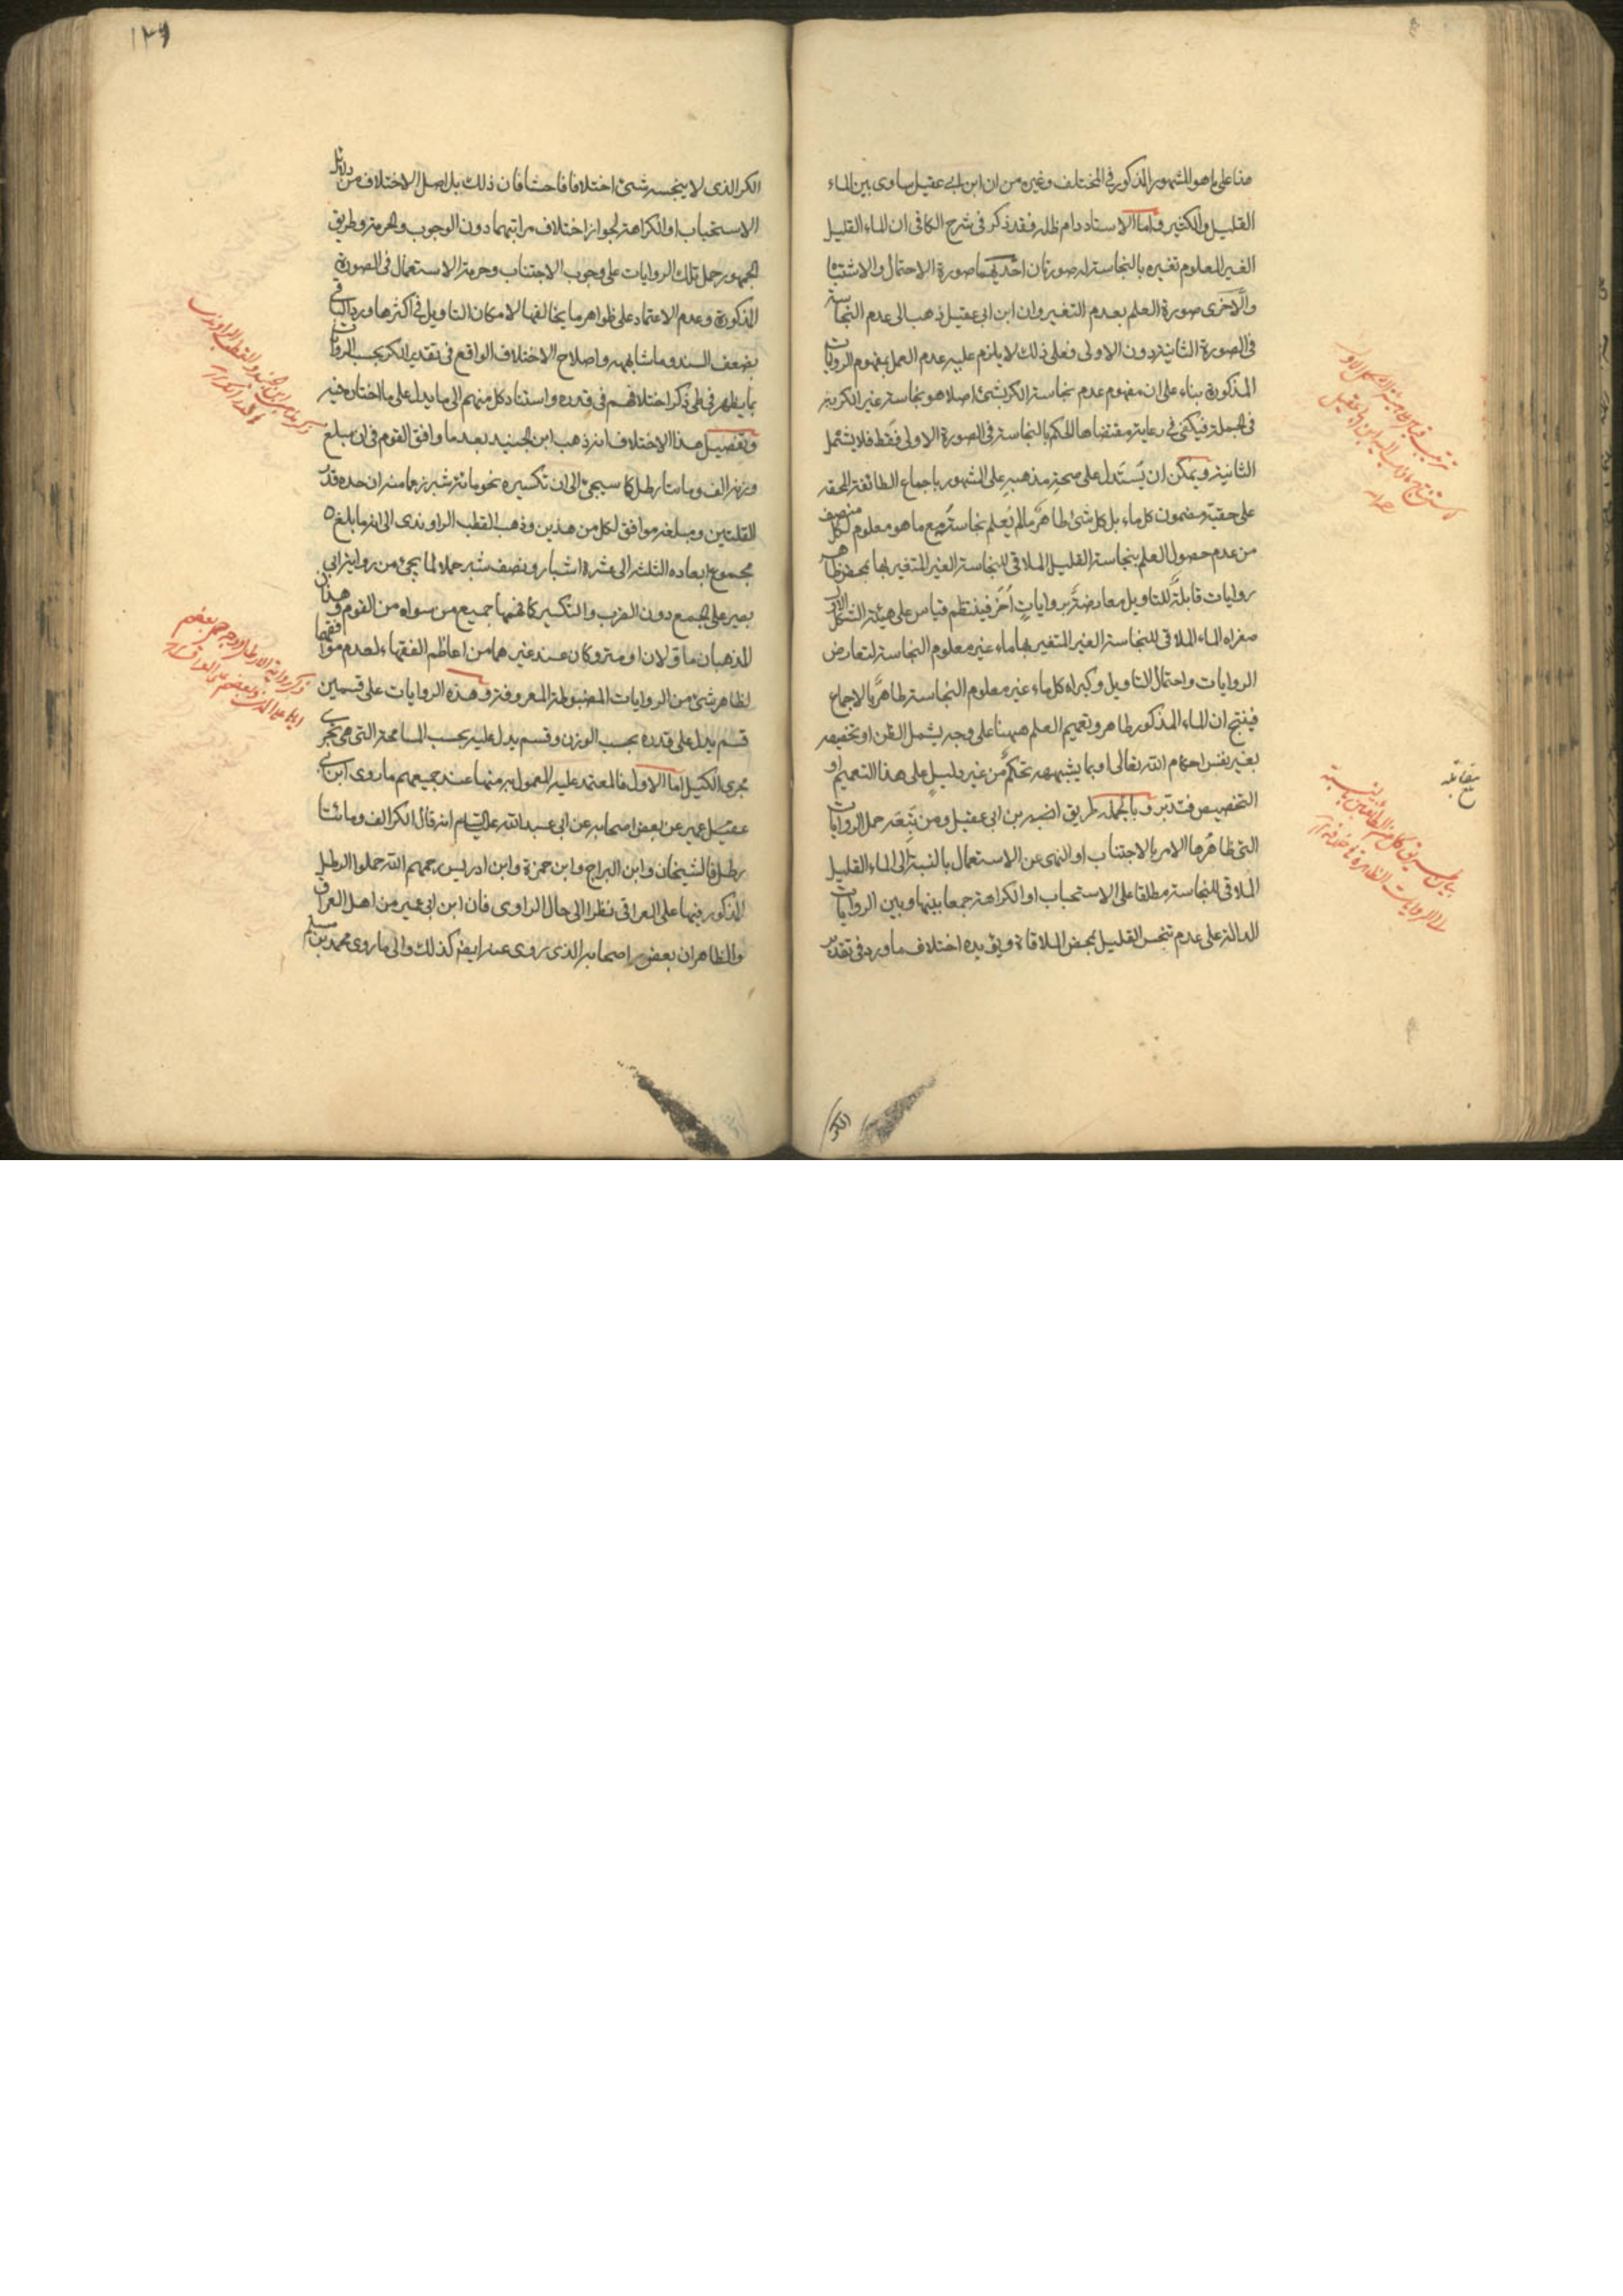 منا على ما هو المشهور المذكور في المختلف وغيره من ان ابن ابي عقيل ساوى بين الماء
القليل والكثير واما الاستاد دام ظله فقد ذكر في شرح الكافي ان الماء القليل
الغير المعلوم تغيره بالنجاسة له صورتان احديهما صورة الاحتمال والاشتباه
والاخرى صورة العلم بعدم التغير وان ابن ابي عقيل ذهب الى عدم النجاسة
في الصورة الثانية دون الاولى فعلى ذلك لا يلزم عليه عدم العمل بمفهوم الروايات
المذكورة بناء على ان مفهوم عدم نجاسة الكر بشئ اصلا هو نجاسة غير الكر به
في الجملة فيكفى في رعاية مقتضاها الحكم بالنجاسة في الصورة الاولى فقط فلا يشمل
الثانية ويمكن ان يستدل على صحة مذهبه على المشهور باجماع الطائفة المحقة
على حقية مضمون كل ماء بل كل شئ طاهر ما لم يعلم نجاسته مع ما هو معلوم لكل منصف
من عدم حصول العلم بنجاسة القليل الملاقي للنجاسة الغير المتغير بها بمحض ظاهر
روايات قابلة للتاويل معارضة بروايات اخر فينتظم قياس على هيئة الشكل الاول
صغراه الماء الملاقي للنجاسة الغير المتغير بها ماء غير معلوم النجاسة لتعارض
الروايات واحتمال التاويل وكبراه كل ماء غير معلوم النجاسة طاهر بالاجماع
فينتج ان الماء المذكور طاهر وتعميم العلم ههنا على وجه يشمل الظن او تخصيصه
بغير نفس احكام الله تعالى او بما يشبهه تحكم من غير دليل على هذا التعميم او
التخصيص فتدبر وبالجملة طريق ابن ابي عقيل ومن تبعه حمل الروايات
التي ظاهرها الامر بالاجتناب او النهى عن الاستعمال بالنسبة الى الماء القليل
الملاقي للنجاسة مطلقا على الاستحباب او الكراهة جمعا بينها وبين الروايات
الدالة على عدم تنجس القليل بمحض الملاقاة ويؤيده اختلاف ما ورد في تقدير
الكر
بلغ مقابله
١٢٦
الكر الذي لا ينجسه شئ اختلافا فاحشا فان ذلك بل اصل الاختلاف من دلائل
الاستحباب او الكراهة لجواز اختلاف مراتبهما دون الوجوب والحرمة وطريق
الجمهور حمل تلك الروايات على وجوب الاجتناب وحرمة الاستعمال في الصورة
المذكورة وعدم الاعتماد على ظواهر ما يخالفها لامكان التاويل في اكثرها ورد الباقي
بضعف السند وما شابهه واصلاح الاختلاف الواقع في تقدير الكر بحسب الروايات
بما يظهر في طي ذكر اختلافهم في قدره واستناد كل منهم الى ما يدل على ما اختاره فيه
وتفصيل هذا الاختلاف انه ذهب ابن الجنيد بعد ما وافق القوم في ان مبلغ
وزنه الف وماتا رطل كما سيجئ الى ان تكسيره نحو مائة شبر زعما منه ان حده قدر
القلتين ومبلغه موافق لكل من هذين وذهب القطب الراوندى الى انه ما بلغ
مجموع ابعاده الثلثة الى عشرة اشبار ونصف شبر حملا لما يجئ من رواية ابي
بصير على الجمع دون الضرب والتكسير كما فهمها جميع من سواه من القوم وهذان
المذهبان ماؤلان او متروكان عند غيرهما من اعاظم الفقهاء لعدم موافقتهما
لظاهر شئ من الروايات المضبوطة المعروفة وهذه الروايات على قسمين
قسم يدل على قدره بحسب الوزن وقسم يدل عليه بحسب المساحة التي هي تجري
مجرى الكيل اما الاول فالمعتمد عليه المعمول به منها عند جميعهم ما روى ابن ابي
عمير عن بعض اصحابه عن ابي عبد الله عليه السلام انه قال الكر الف ومائتا
رطل فالشيخان وابن البراج وابن حمزة وابن ادريس رحمهم الله حملوا الرطل
المذكور فيها على العراقي نظرا الى حال الراوى فان ابن ابي عمير من اهل العراق
والظاهر ان بعض اصحابه الذي روى عنه ايضا كذلك والى ما روى محمد بن مسلم